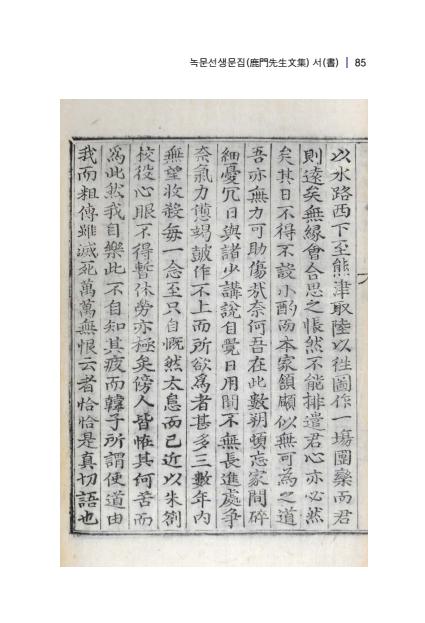 녹문선생문집(鹿門先生文集) 서(書) | 85
以水路西下至熊津取陸以徃圖作一塲團欒而君
則遠矣無緣會合思之悵然不能排遣君心亦必然
矣其日不得不設小酌而本家顉顑似無可爲之道
吾亦無力可助傷㦲奈何吾在此數朔頓忘家間碎
細憂冗日與諸少講說自覺日用間不無長進處爭
奈氣力憊竭皷作不上而所欲爲者甚多三數年內
無望收殺每一念至只自慨然太息而已近以朱劄
校役心眼不得暫休勞亦極矣傍人皆恠其何苦而
爲此然我自樂此不自知其疲而韓子所謂使道由
我而粗傳雖滅死萬萬無恨云者恰恰是真切語也